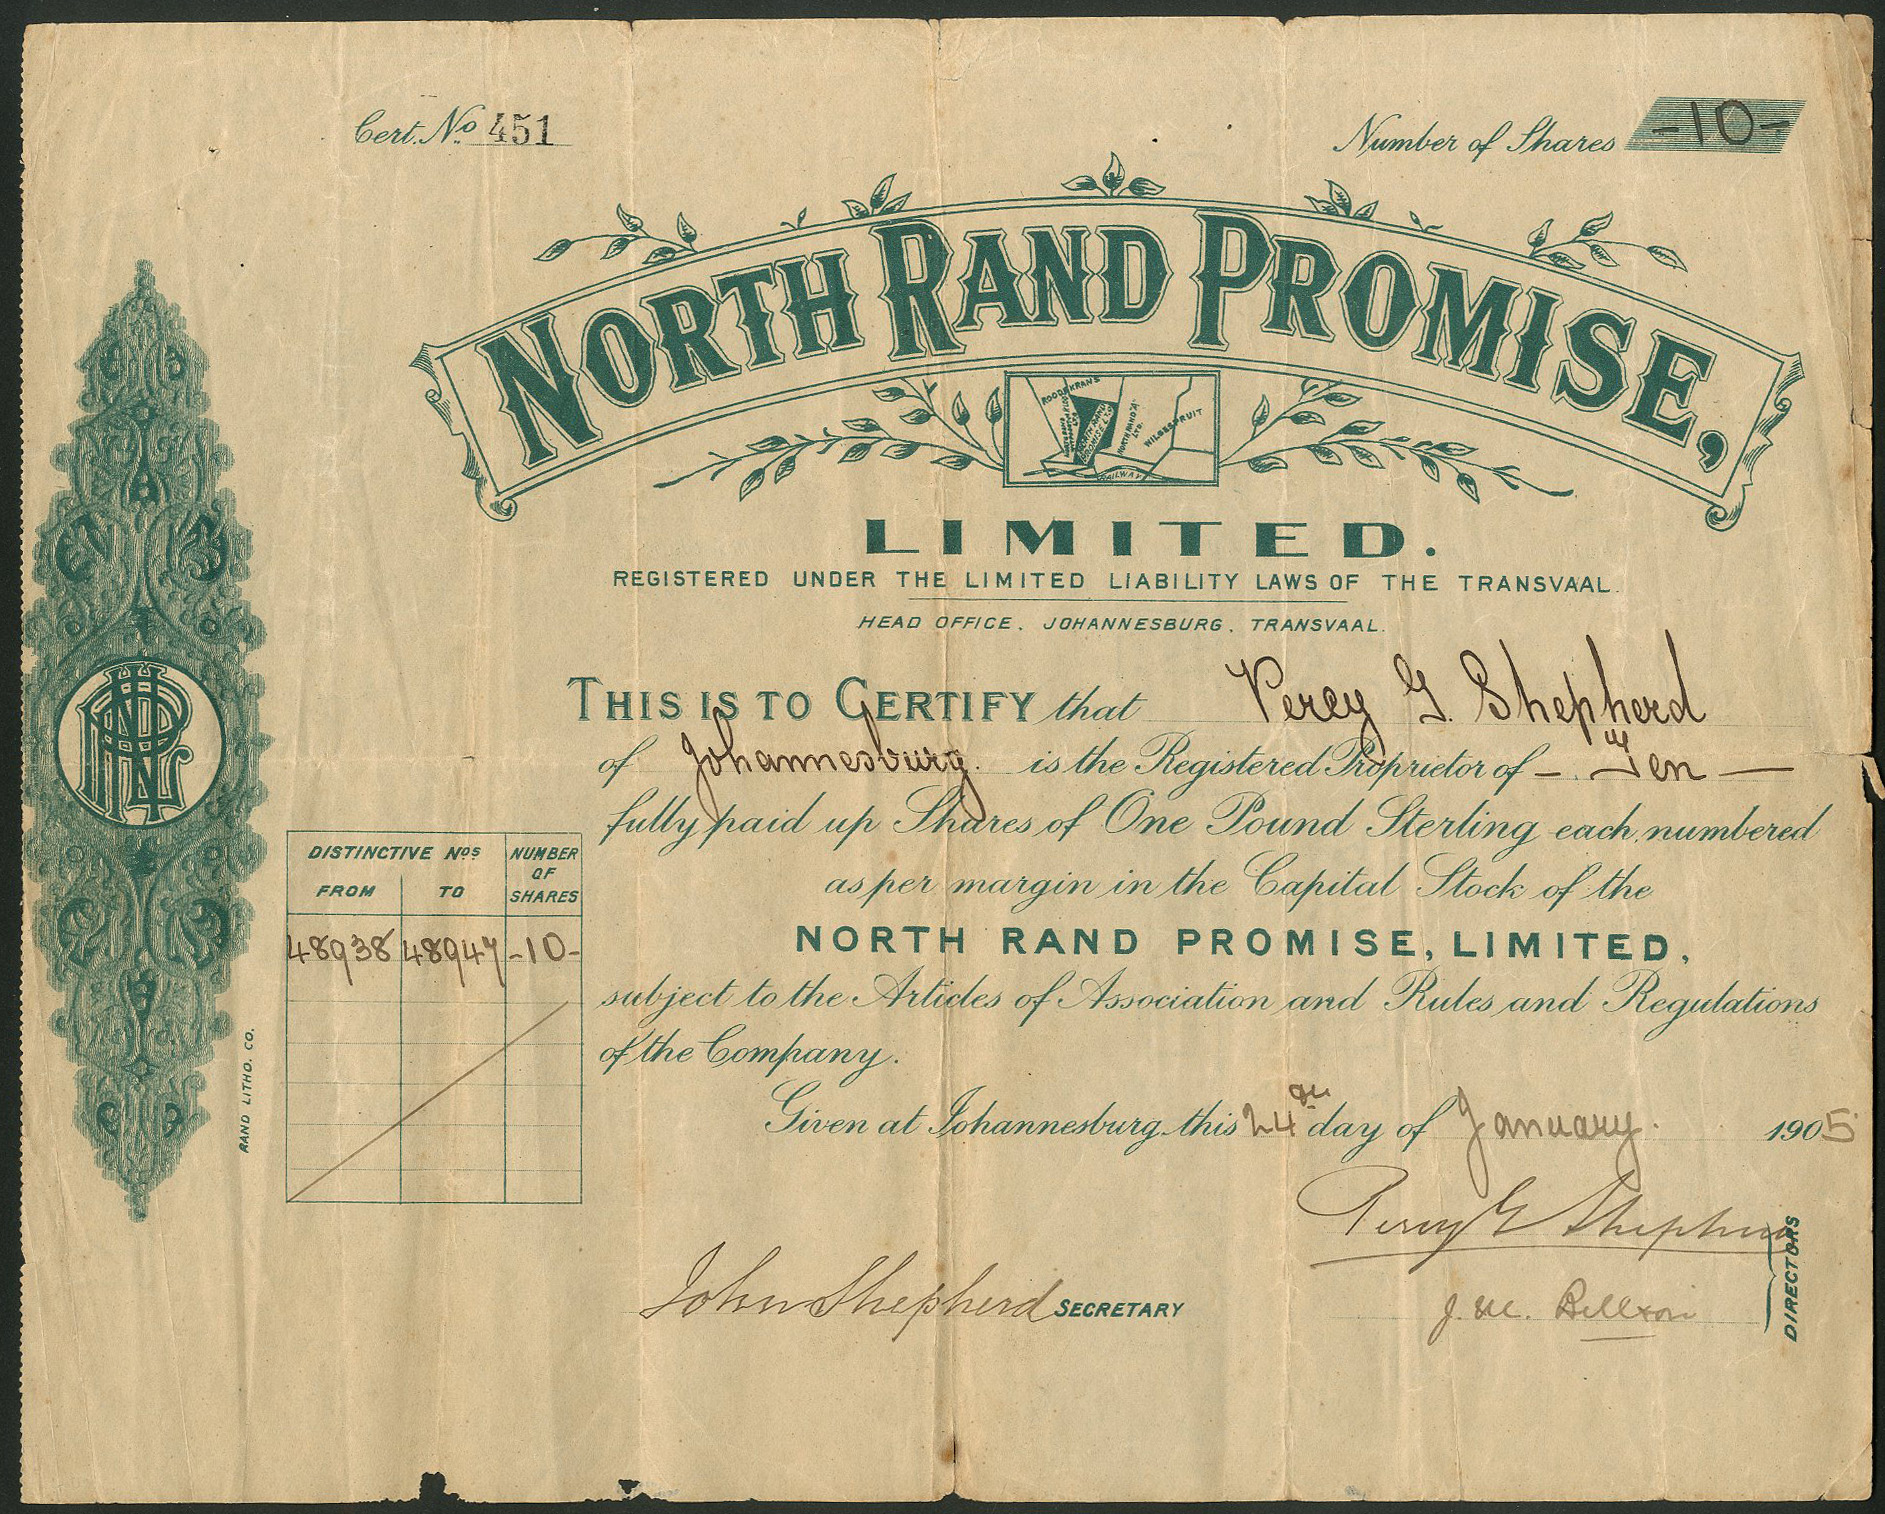 Cert. No. 451
Number of Shares -10-
NORTH RAND PROMISE,
ROODEKRANS
NORTH RAND PROMISE LTD
WILGESPRUIT
RAILWAY
LIMITED.
REGISTERED UNDER THE LIMITED LIABILITY LAWS OF THE TRANSVAAL.
HEAD OFFICE, JOHANNESBURG, TRANSVAAL.
THIS IS TO CERTIFY that Percy G. Shepherd
of Johannesburg. is the Registered Proprietor of - Ten -
fully paid up Shares of One Pound Sterling each, numbered
as per margin in the Capital Stock of the
NORTH RAND PROMISE, LIMITED,
subject to the Articles of Association and Rules and Regulations
of the Company.
Given at Johannesburg this 24th day of January. 1905
DISTINCTIVE NOS NUMBER OF SHARES
FROM TO
48938 48947 -10-
RAND LITHO. CO.
Percy G Shepherd
John Shepherd SECRETARY
DIRECTORS